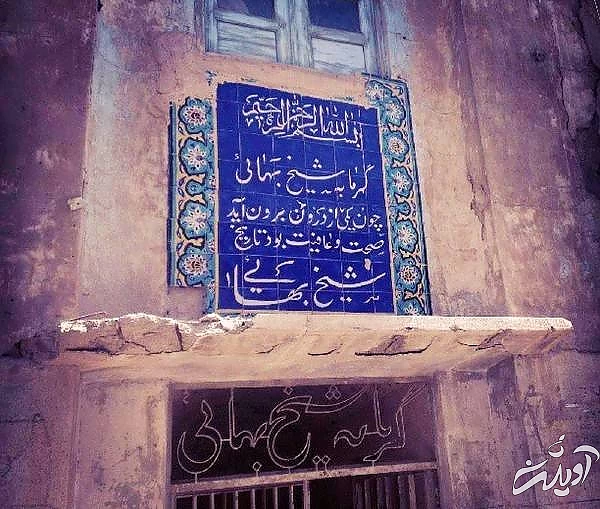 بسم الله الرحمن الرحیم
گرمابه شیخ بهائی
چون یکی از درون برون آید
صحت و عافیت بود تاریخ
شیخ بهائی
گرمابه شیخ بهائی
آویش